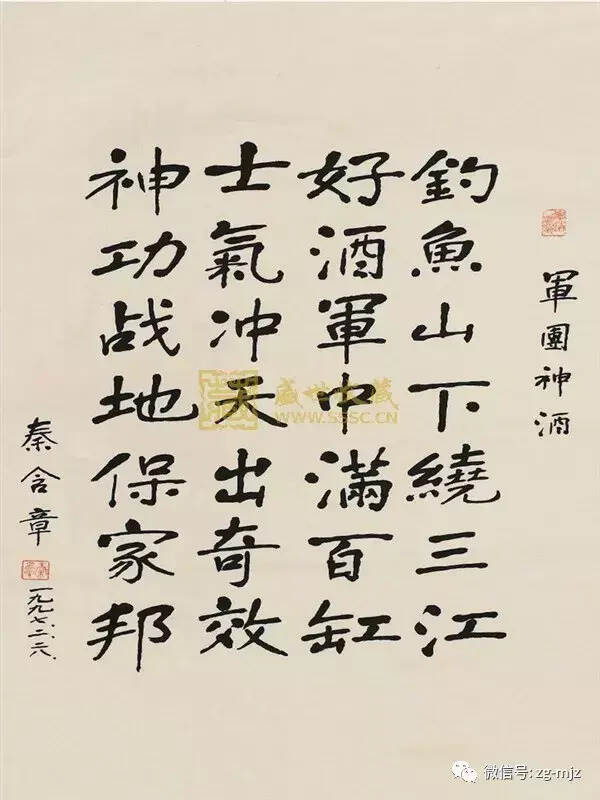 軍團神酒
釣魚山下繞三江
好酒軍中滿百缸
士氣冲天出奇效
神功战地保家邦
秦含章
一九九七.二.六.
盛世收藏
WWW.SSSC.CN
微信号: zg-mjz